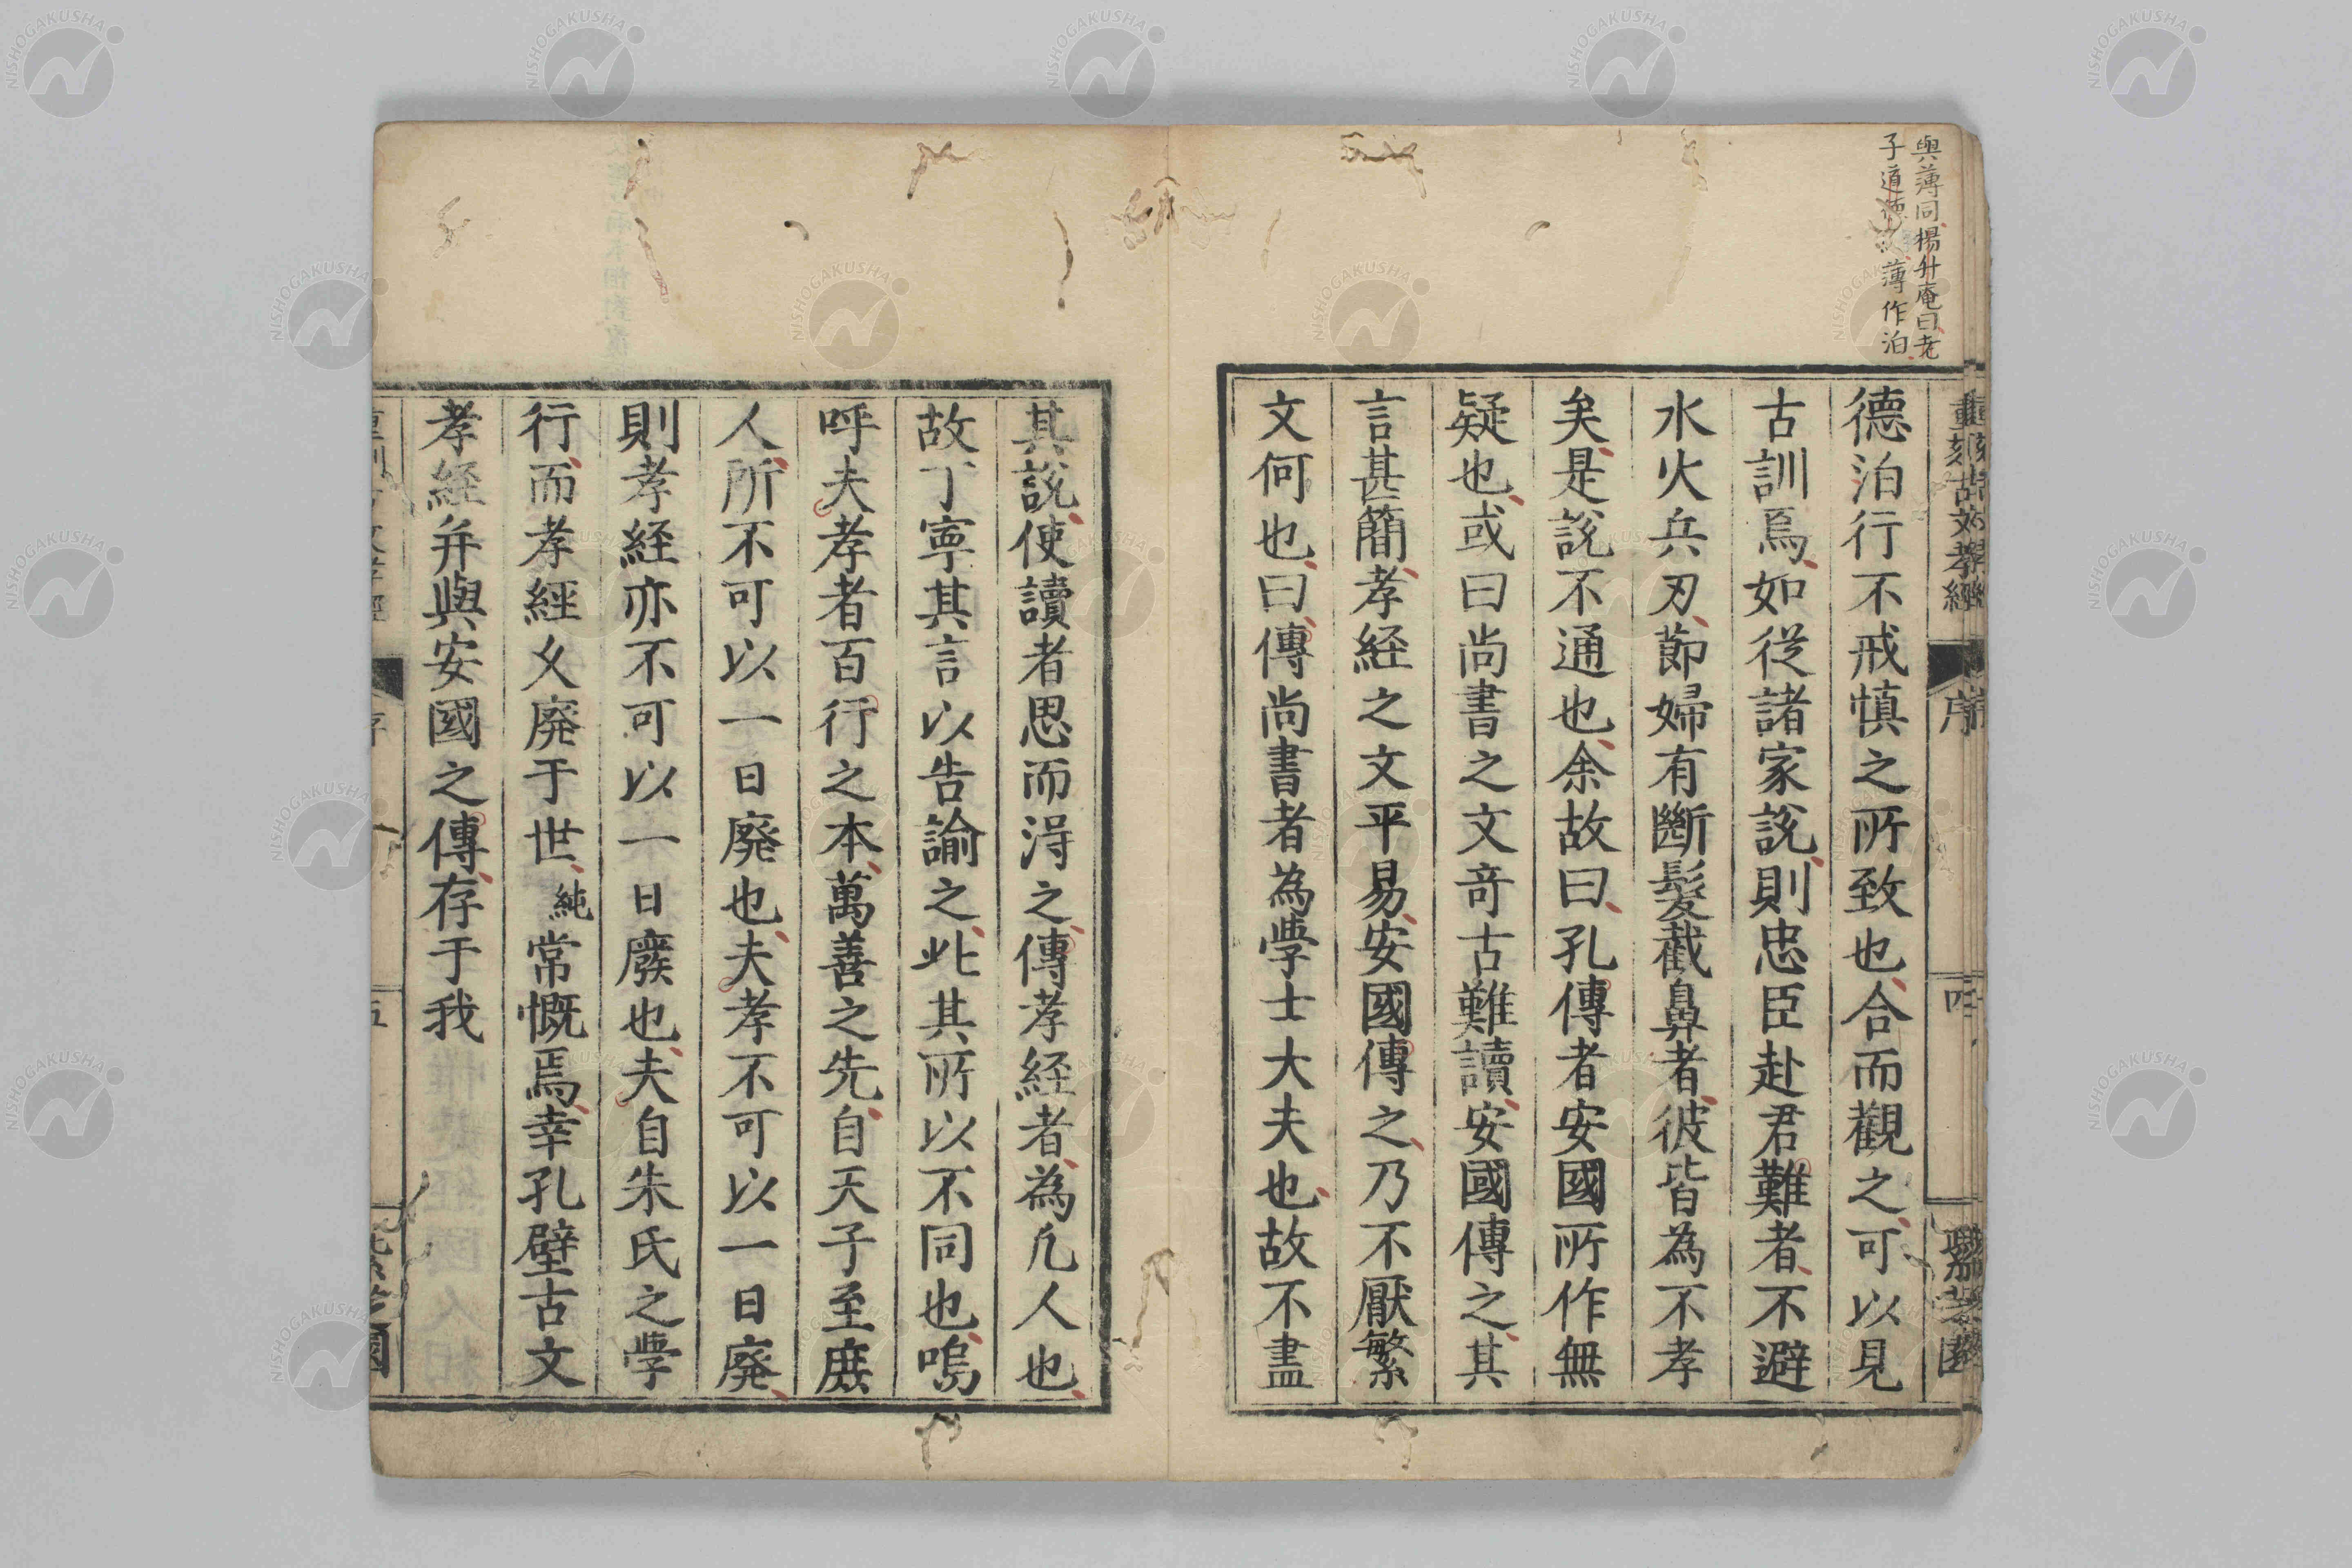 與薄同楊升庵曰老
子道德
薄作泊
重刻古文孝經
序
四
德泊行不戒慎之所致也合而觀之可以見
古訓焉如從諸家說則忠臣赴君難者不避
水火兵刃節婦有斷髮截鼻者彼皆為不孝
矣是說不通也余故曰孔傳者安國所作無
疑也或曰尚書之文奇古難讀安國傳之其
言甚簡孝経之文平易安國傳之乃不厭繁
文何也曰傳尚書者為學士大夫也故不盡
其說使讀者思而淂之傳孝経者為凡人也
故丁寧其言以告諭之此其所以不同也嗚
呼夫孝者百行之本萬善之先自天子至庶
人所不可以一日廢也夫孝不可以一日廢
則孝経亦不可以一日廢也夫自朱氏之學
行而孝經乆廢于世純常慨焉幸孔壁古文
孝経并與安國之傳存于我
序
五
NISHOGAKUSHA